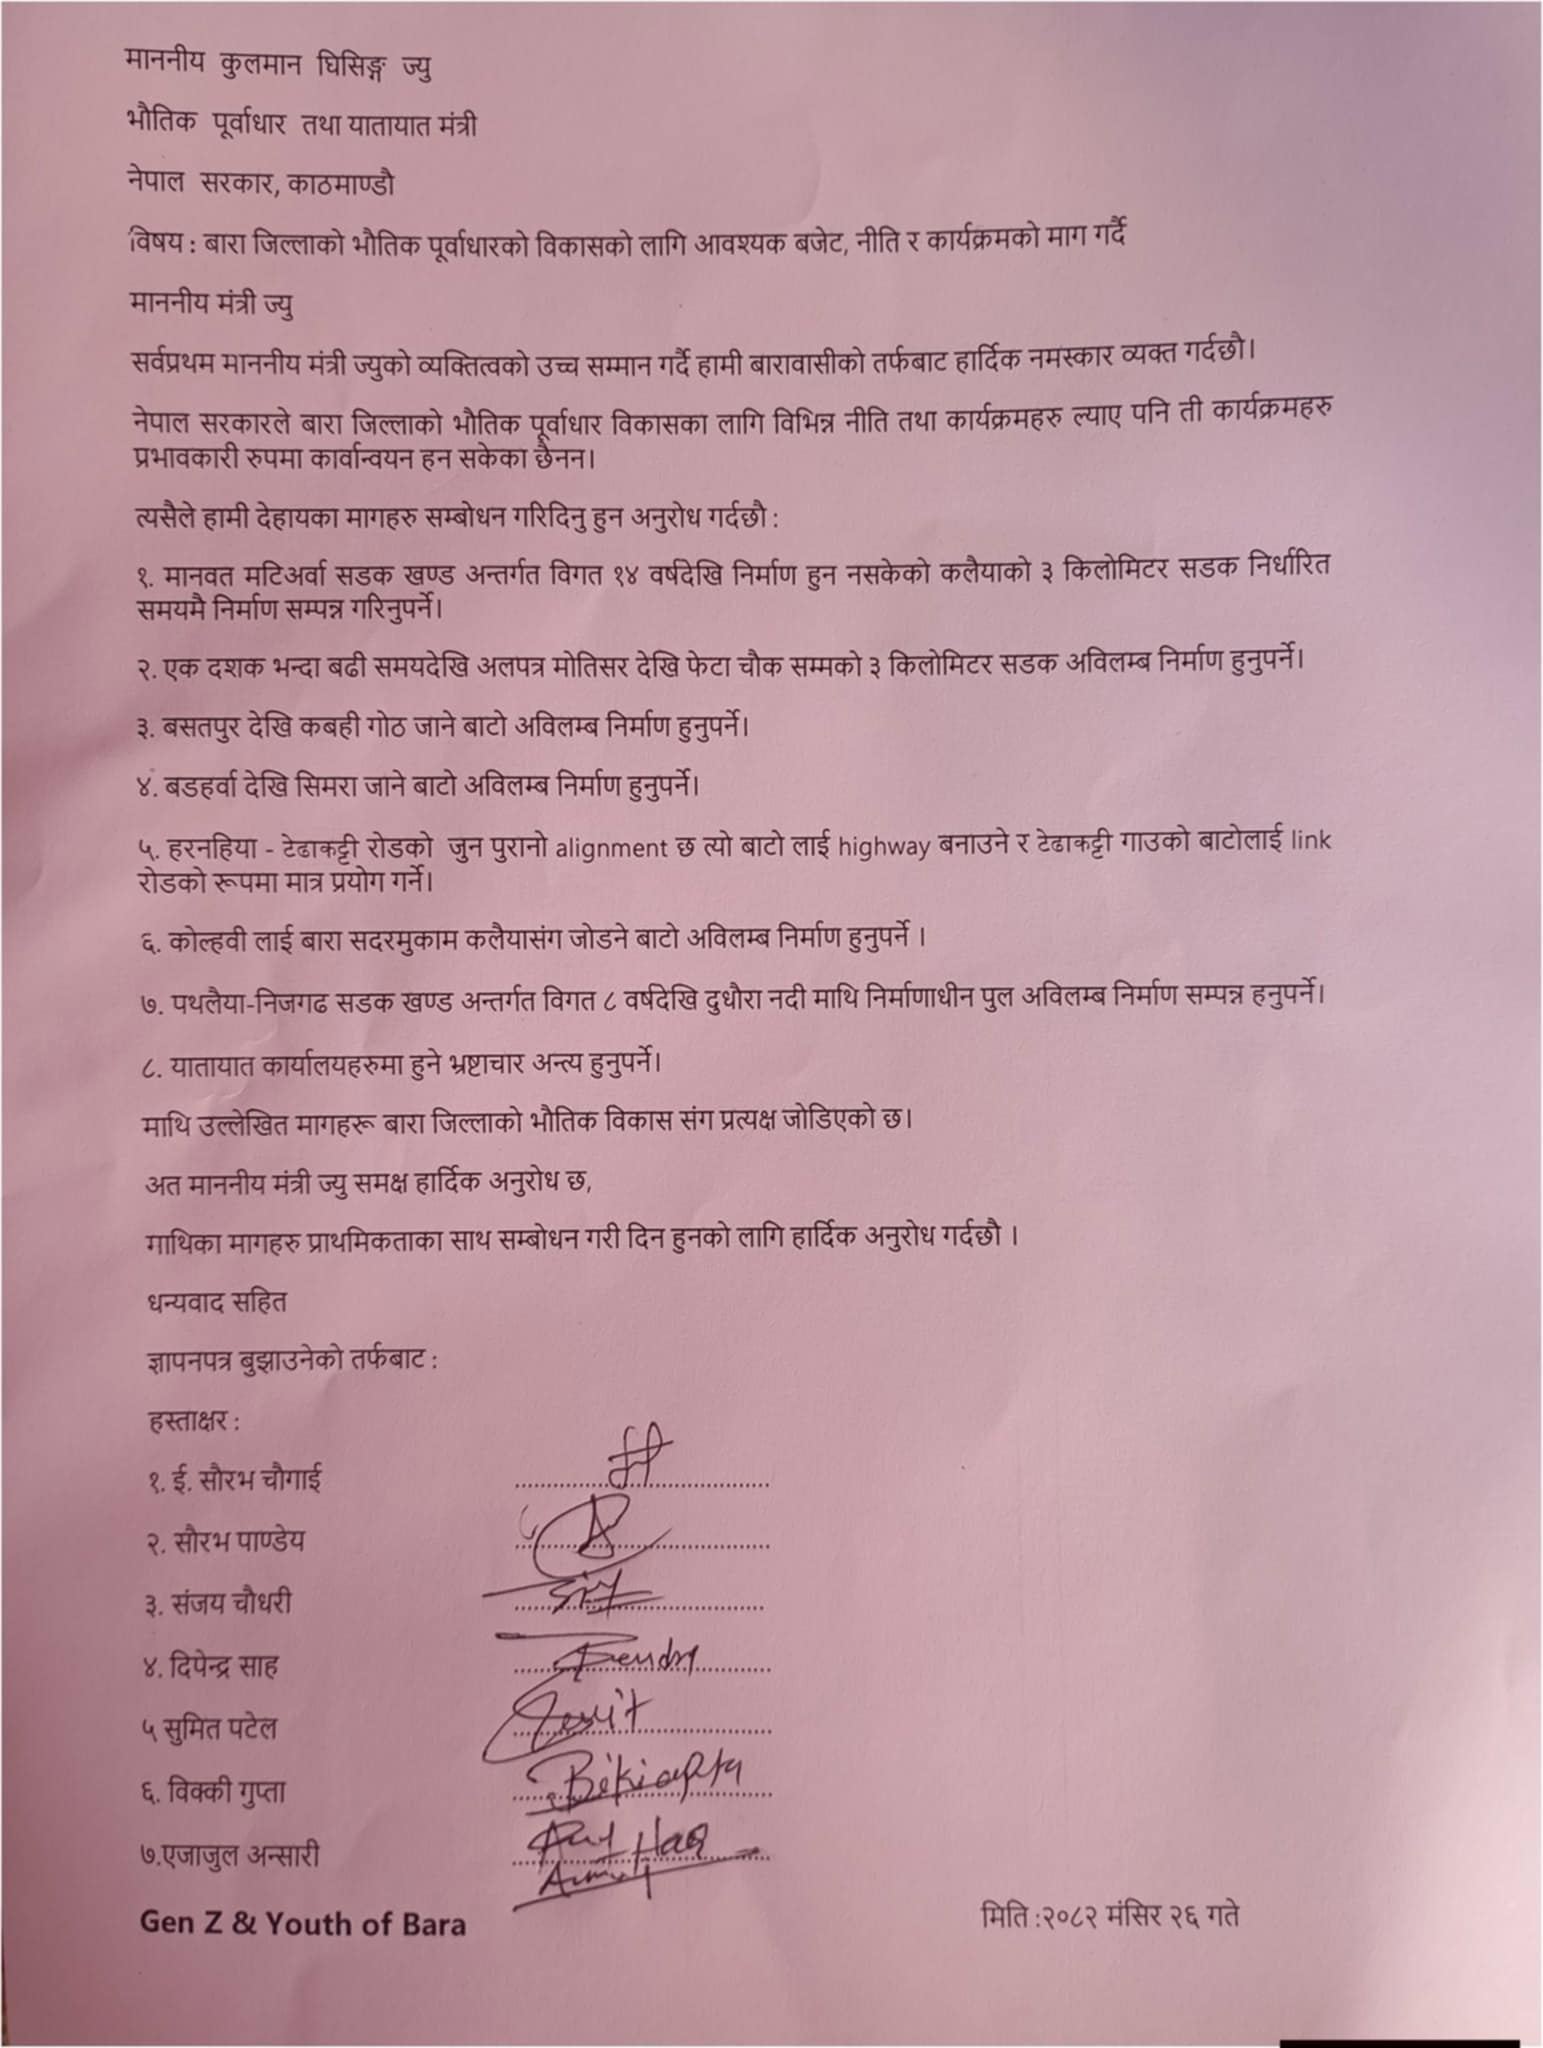 माननीय कुलमान घिसिङ्ग ज्यु
भौतिक पूर्वाधार तथा यातायात मंत्री
नेपाल सरकार, काठमाण्डौ
विषय : बारा जिल्लाको भौतिक पूर्वाधारको विकासको लागि आवश्यक बजेट, नीति र कार्यक्रमको माग गर्दै
माननीय मंत्री ज्यु
सर्वप्रथम माननीय मंत्री ज्युको व्यक्तित्वको उच्च सम्मान गर्दै हामी बारावासीको तर्फबाट हार्दिक नमस्कार व्यक्त गर्दछौ।
नेपाल सरकारले बारा जिल्लाको भौतिक पूर्वाधार विकासका लागि विभिन्न नीति तथा कार्यक्रमहरु ल्याए पनि ती कार्यक्रमहरु
प्रभावकारी रुपमा कार्वान्वयन हन सकेका छैनन।
त्यसैले हामी देहायका मागहरु सम्बोधन गरिदिनु हुन अनुरोध गर्दछौ :
१. मानवत मटिअर्वा सडक खण्ड अन्तर्गत विगत १४ वर्षदेखि निर्माण हुन नसकेको कलैयाको ३ किलोमिटर सडक निर्धारित
समयमै निर्माण सम्पन्न गरिनुपर्ने।
२. एक दशक भन्दा बढी समयदेखि अलपत्र मोतिसर देखि फेटा चौक सम्मको ३ किलोमिटर सडक अविलम्ब निर्माण हुनुपर्ने।
३. बसतपुर देखि कबही गोठ जाने बाटो अविलम्ब निर्माण हुनुपर्ने।
४. बडहर्वा देखि सिमरा जाने बाटो अविलम्ब निर्माण हुनुपर्ने।
५. हरनहिया - टेढाकट्टी रोडको जुन पुरानो alignment छ त्यो बाटो लाई highway बनाउने र टेढाकट्टी गाउको बाटोलाई link
रोडको रूपमा मात्र प्रयोग गर्ने।
६. कोल्हवी लाई बारा सदरमुकाम कलैयासंग जोडने बाटो अविलम्ब निर्माण हुनुपर्ने ।
७. पथलैया-निजगढ सडक खण्ड अन्तर्गत विगत ८ वर्षदेखि दुधौरा नदी माथि निर्माणाधीन पुल अविलम्ब निर्माण सम्पन्न हनुपर्ने।
८. यातायात कार्यालयहरुमा हुने भ्रष्टाचार अन्त्य हुनुपर्ने।
माथि उल्लेखित मागहरू बारा जिल्लाको भौतिक विकास संग प्रत्यक्ष जोडिएको छ।
अत माननीय मंत्री ज्यु समक्ष हार्दिक अनुरोध छ,
गाथिका मागहरु प्राथमिकताका साथ सम्बोधन गरी दिन हुनको लागि हार्दिक अनुरोध गर्दछौ ।
धन्यवाद सहित
ज्ञापनपत्र बुझाउनेको तर्फबाट :
हस्ताक्षर :
१. ई. सौरभ चौगाई
२. सौरभ पाण्डेय
३. संजय चौधरी
४. दिपेन्द्र साह
५ सुमित पटेल
६. विक्की गुप्ता
७.एजाजुल अन्सारी
Gen Z & Youth of Bara
मिति :२०८२ मंसिर २६ गते